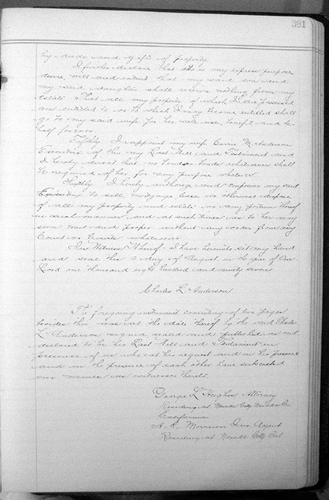 381
by deed and gift of property
I further declare that it is my express purpose
desire, will and intend that my said son and
my said daughter shall receive nothing from my
Estate. That all my property of which I am possessed
and entitled to or to which I may become entitled shall
go to my said wife for her sole use, benefit and be-
half forever.
Fifthly I appoint my wife M. Anderson
Executrix of this my Last Will and Testament and
I hereby direct that no bonds whatever shall
be required of her for any purpose whatever
Sixthly I hereby authorize and empower my said
Executrix to sell, mortgage, lease or otherwise dispose
of all my property real estate or any portion thereof
in such manner and at such times as to her may
seem meet and proper without any order from any
Court or Private whatsoever
In Witness Whereof I have hereunto set my hand
and seal this 3 day of August in the year of Our
Lord one thousand eight hundred and ninety seven
Charles L. Anderson
The foregoing instrument consisting of two pages
besides this was at the date thereof by the said Charles
L. Anderson signed sealed and published and
declared to be his Last Will and Testament in
presence of us who at his request and in his presence
and in the presence of each other have subscribed
our names as witnesses thereto
George L. Hughes Attorney
Residing at
California
A. R. Morrison Ins. Agent
Residing at Cal